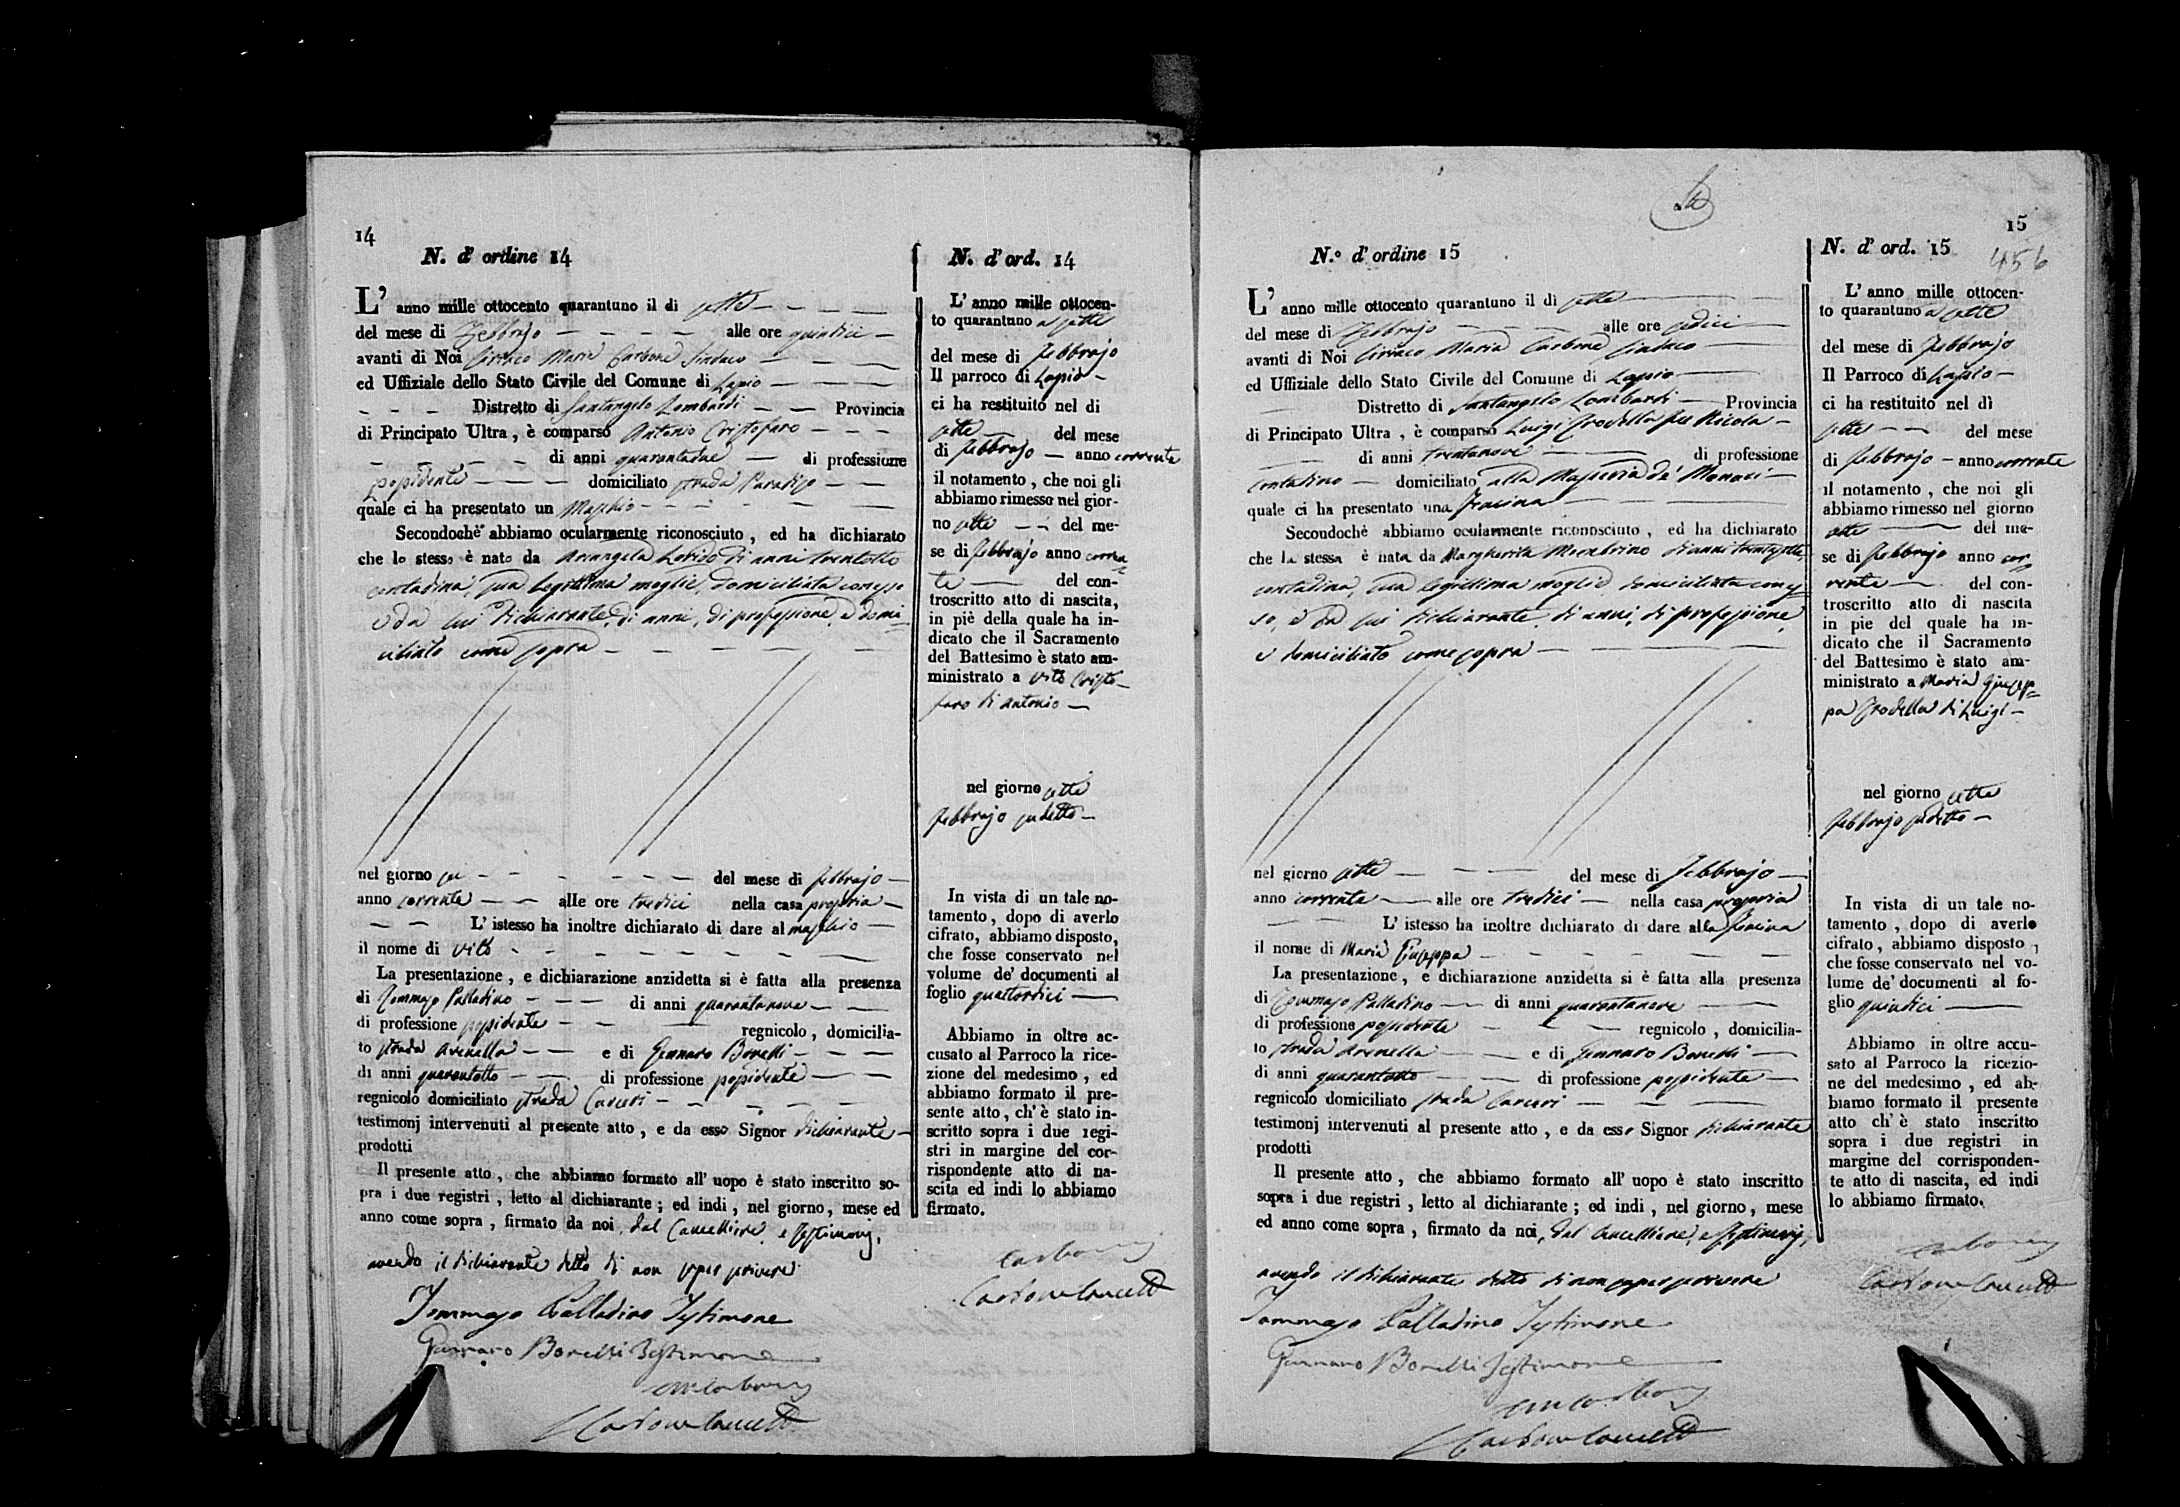 14
N. d' ordine 14
L' anno mille ottocento quarantuno il dì sette
del mese di Febbrajo alle ore quindici
avanti di Noi Ciriaco Maria Carbone Sindaco
ed Uffiziale dello Stato Civile del Comune di Lapio
Distretto di Santangelo Lombardi Provincia
di Principato Ultra, è comparso Antonio Cristofaro
di anni quarantadue di professione
possidente domiciliato strada Paradiso
quale ci ha presentato un Maschio
Secondochè abbiamo ocularmente riconosciuto, ed ha dichiarato
che lo stesso è nato da Arcangela di anni trentotto
contadina, sua legittima moglie, domiciliata con esso
e da lui dichiarante, di anni, di professione, e domi=
ciliato come sopra
nel giorno sei del mese di febbrajo
anno corrente alle ore tredici nella casa propria
L' istesso ha inoltre dichiarato di dare al maschio
il nome di Vito
La presentazione, e dichiarazione anzidetta si è fatta alla presenza
di Tommaso Palladino di anni quarantanove
di professione possidente regnicolo, domicilia-
to strada Arenella e di Gennaro Bonelli
di anni quarantotto di professione possidente
regnicolo domiciliato strada Carceri
testimonj intervenuti al presente atto, e da esso Signor dichiarante
prodotti
Il presente atto, che abbiamo formato all' uopo è stato inscritto so-
pra i due registri, letto al dichiarante; ed indi, nel giorno, mese ed
anno come sopra, firmato da noi, dal Cancelliere, e testimonj,
avendo il dichiarante detto di non saper scrivere
Tommaso Palladino Testimone
Gennaro Bonelli Testimone
Carbone
Carbone Cancell
N. d' ord. 14
L' anno mille ottocen-
to quarantuno a sette
del mese di Febbrajo
Il parroco di Lapio
ci ha restituito nel dì
sette del mese
di febbrajo anno corrente
il notamento, che noi gli
abbiamo rimesso nel gior-
no sette del me-
se di febbrajo anno corren
te del con-
troscritto atto di nascita,
in piè della quale ha in-
dicato che il Sacramento
del Battesimo è stato am-
ministrato a Vito Cristo-
faro di Antonio
nel giorno sette
febbrajo sudetto
In vista di un tale no-
tamento, dopo di averlo
cifrato, abbiamo disposto,
che fosse conservato nel
volume de' documenti al
foglio quattordici
Abbiamo in oltre ac-
cusato al Parroco la rice-
zione del medesimo, ed
abbiamo formato il pre-
sente atto, ch' è stato in-
scritto sopra i due regi-
stri in margine del cor-
rispondente atto di na-
scita ed indi lo abbiamo
firmato.
Carbone
Carbone Cancell
15
456
N.° d' ordine 15
L' anno mille ottocento quarantuno il dì sette
del mese di Febbrajo alle ore sedici
avanti di Noi Ciriaco Maria Carbone Sindaco
ed Uffiziale dello Stato Civile del Comune di Lapio
Distretto di Santangelo Lombardi Provincia
di Principato Ultra, è comparso Luigi Frodella fu Nicola
di anni trentanove di professione
contadino domiciliato alla Masseria de' Monaci
quale ci ha presentato una femina
Secondochè abbiamo ocularmente riconosciuto, ed ha dichiarato
che la stessa è nata da Margherita Membrino di anni trentasette,
contadina, sua legittima moglie domiciliata con es
so, e da lui dichiarante, di anni, di professione,
e domiciliato come sopra
nel giorno sette del mese di Febbrajo
anno corrente alle ore tredici nella casa propria
L' istesso ha inoltre dichiarato di dare alla femina
il nome di Maria Giuseppa
La presentazione, e dichiarazione anzidetta si è fatta alla presenza
di Tommaso Palladino di anni quarantanove
di professione possidente regnicolo, domicilia-
to strada Arenella e di Gennaro Bonelli
di anni quarantotto di professione possidente
regnicolo domiciliato strada Carceri
testimonj intervenuti al presente atto, e da esso Signor dichiarante
prodotti
Il presente atto, che abbiamo formato all' uopo è stato inscritto
sopra i due registri, letto al dichiarante; ed indi, nel giorno, mese
ed anno come sopra, firmato da noi, dal Cancelliere, e testimonj,
avendo il dichiarante detto di non saper scrivere
Tommaso Palladino Testimone
Gennaro Bonelli Testimone
Carbone
Carbone Cancell
N. d' ord. 15
L' anno mille ottocen-
to quarantuno a sette
del mese di Febbrajo
Il Parroco di Lapio
ci ha restituito nel dì
sette del mese
di febbrajo anno corrente
il notamento, che noi gli
abbiamo rimesso nel giorno
sette del me-
se di febbrajo anno cor
rente del con-
troscritto atto di nascita
in pie del quale ha in-
dicato che il Sacramento
del Battesimo è stato am-
ministrato a Maria Giusep=
pa Frodella di Luigi
nel giorno sette
febbrajo sudetto
In vista di un tale no-
tamento, dopo di averlo
cifrato, abbiamo disposto,
che fosse conservato nel vo-
lume de' documenti al fo-
glio quindici
Abbiamo in oltre accu-
sato al Parroco la ricezio-
ne del medesimo, ed ab-
biamo formato il presente
atto ch' è stato inscritto
sopra i due registri in
margine del corrisponden-
te atto di nascita, ed indi
lo abbiamo firmato.
Carbone
Carbone Cancell